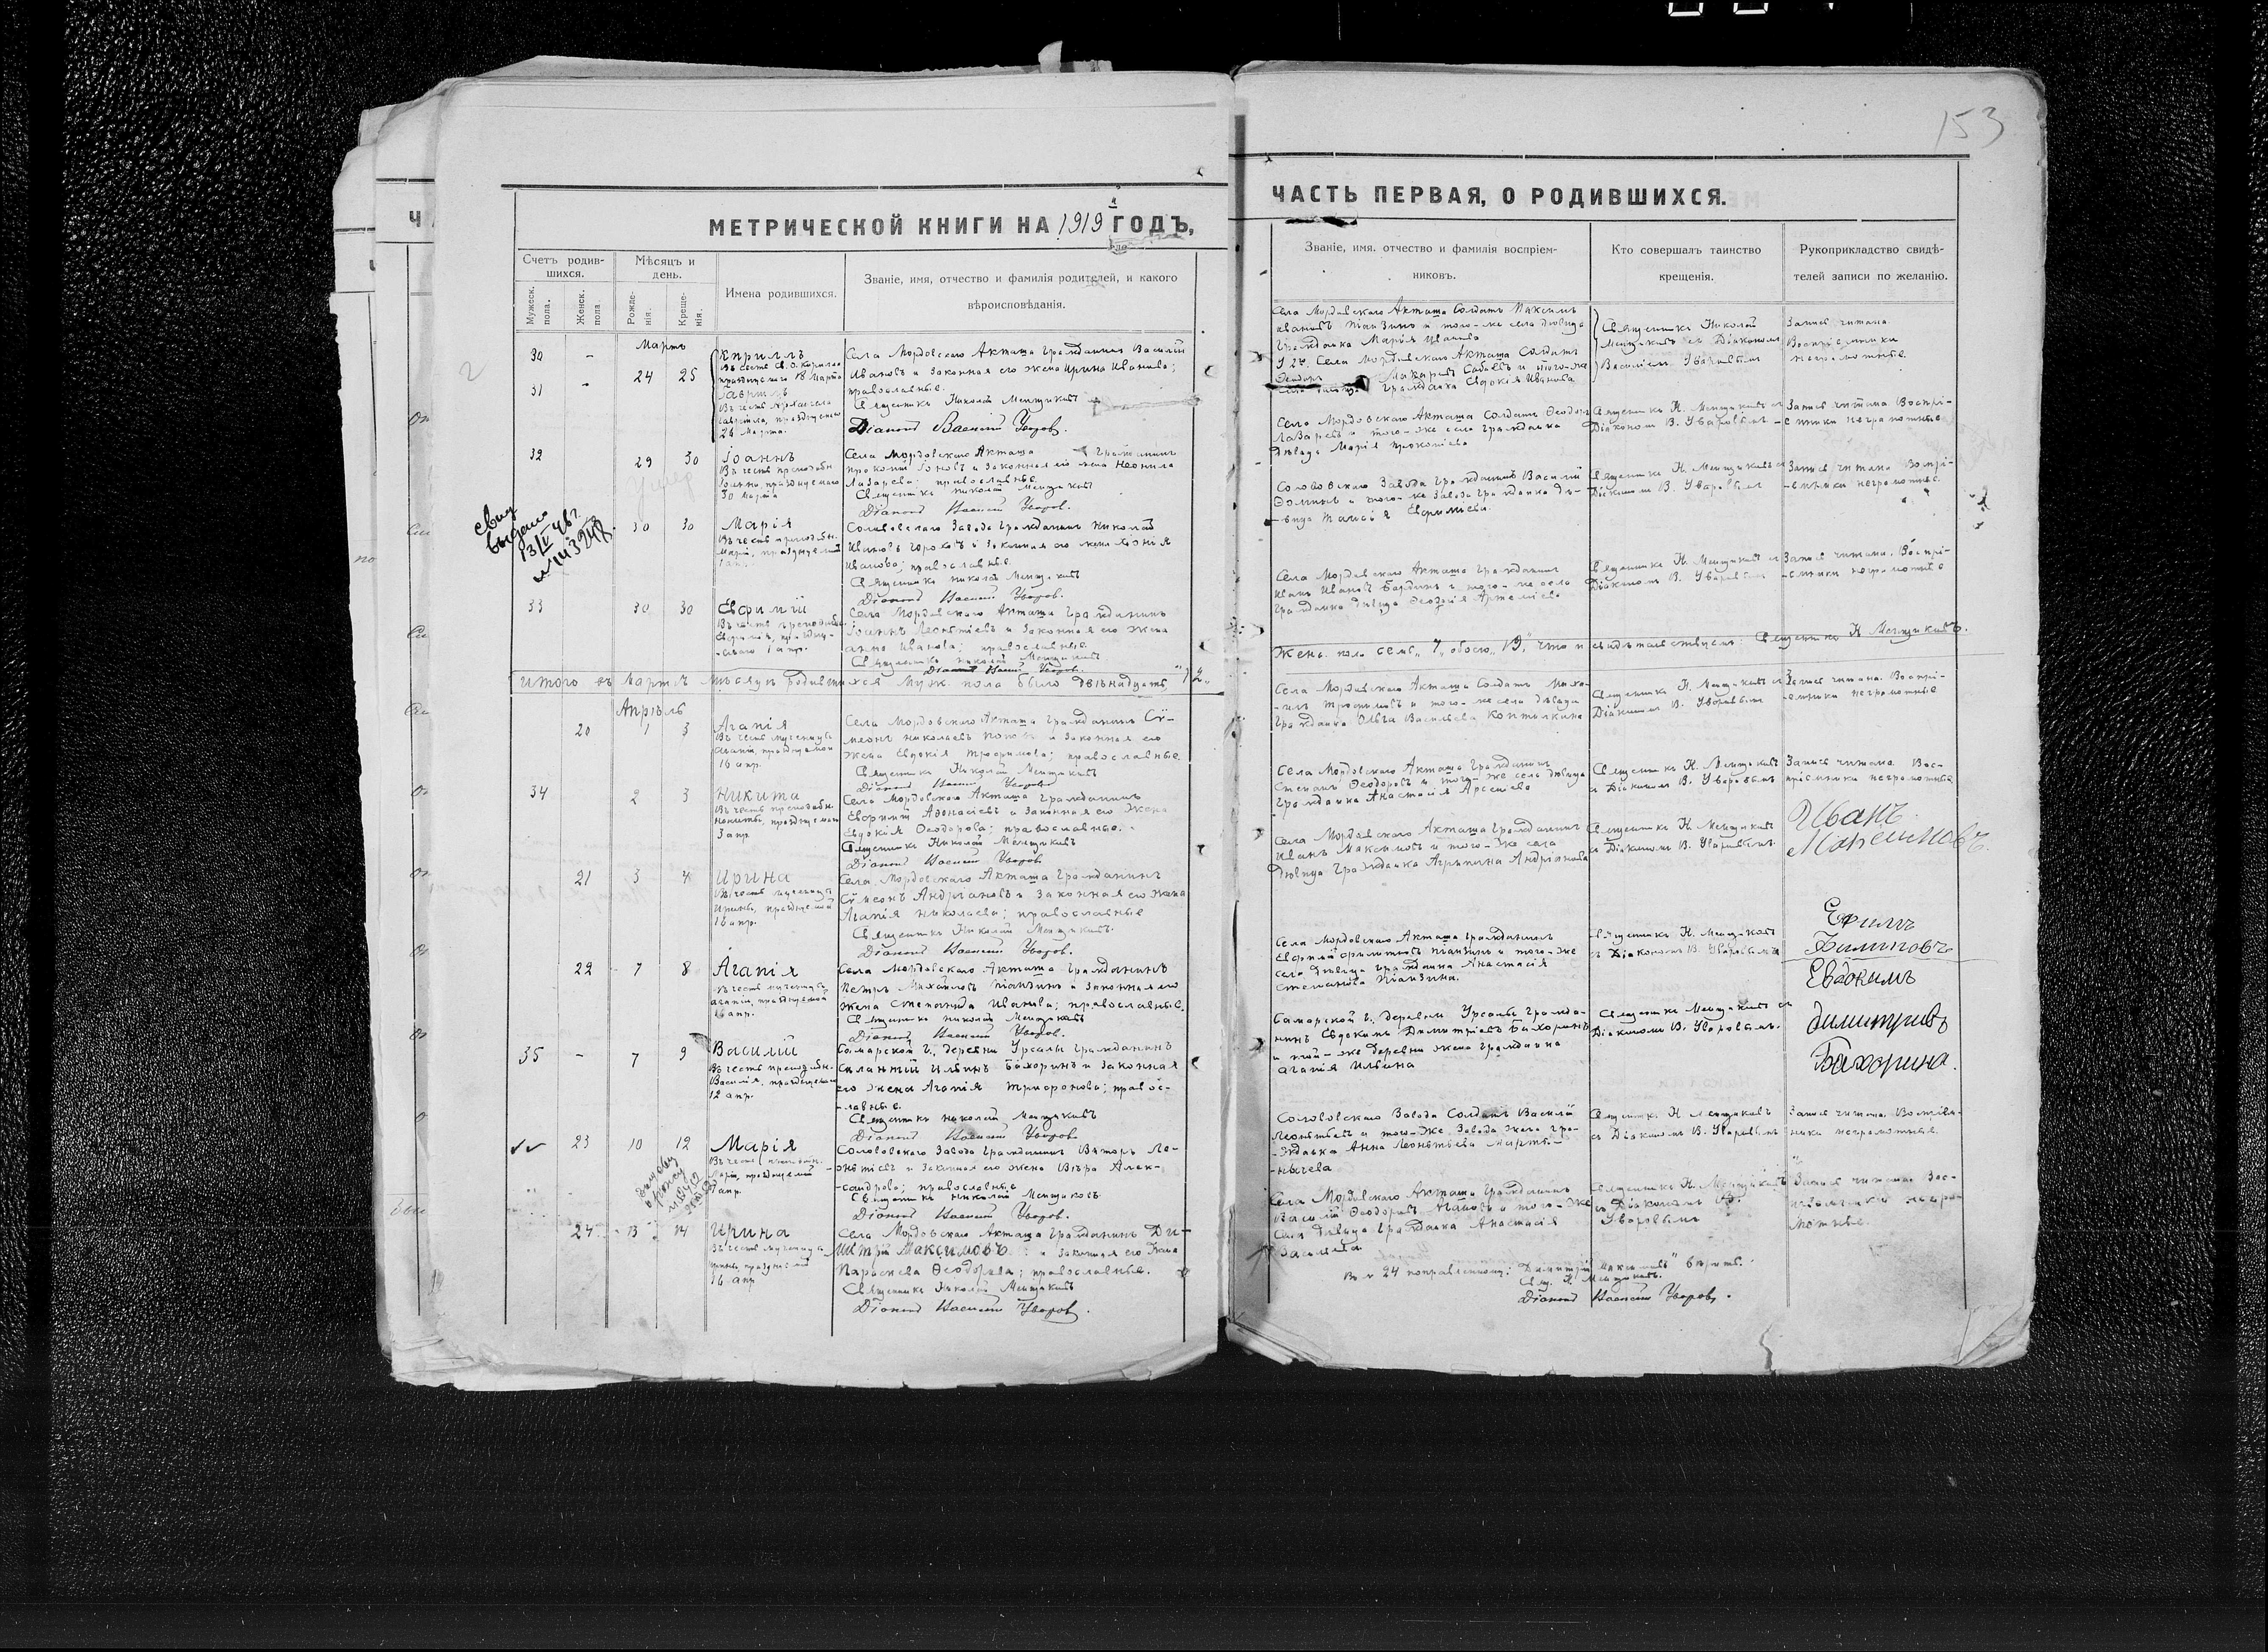 153
МЕТРИЧЕСКОЙ КНИГИ НА 1919 ГОДЪ,
Счетъ родив-
шихся.
Мужеск.
пола.
Женск.
пола
Мѣсяцъ и
день.
Рожде-
нія.
Креще-
нія.
Имена родившихся.
Званіе, имя, отчество и фамилія родителей, и какого
вѣроисповѣданія.
Мартъ
30 -
24 25
31 -
Кириллъ
празднуемаго 18 Марта
Гавріилъ
Въ честь Архангела
Гавріила, празднуемаго
26 Марта.
Села Мордовскаго Акташа гражданинъ Василій
Ивановъ и законная его жена Ирина Иванова;
православные.
Священникъ Николай Менщиковъ
Діаконъ Василій Уваровъ.
32 29 30
Іоаннъ
Въ честь преподобн.
Іоанна, празднуемаго
30 Марта
Села Мордовскаго Акташа гражданинъ
Прокопій и законная его жена Неонила
Лазарева; православные.
Священникъ Николай Менщиковъ
Діаконъ Василій Уваровъ.
Свид
выдано
13/IV 46 г.
30 30
Марія
Въ честь преподобн.
Маріи, празднуемой
1 апр.
Солововскаго Завода гражданинъ Николай
Ивановъ и законная его жена
Иванова; православные.
Священникъ Николай Менщиковъ
Діаконъ Василій Уваровъ.
33 30 30
Евфимій
Въ честь преподобн.
Евфимія, праздну-
емаго 1 апр.
Села Мордовскаго Акташа гражданинъ
Іоаннъ Леонтіевъ и законная его жена
Анна Иванова; православные.
Священникъ Николай Менщиковъ
Діаконъ Василій Уваровъ.
Итого въ Мартѣ мѣсяцѣ родившихся муж. пола было двѣнадцать, 12"
Апрѣль
20 1 3
Агапія
Въ честь мученицы
Агапіи, празднуемой
16 апр.
Села Мордовскаго Акташа гражданинъ Сѵ-
меонъ Николаевъ и законная его
жена Евдокія Трофимова; православные.
Священникъ Николай Менщиковъ
Діаконъ Василій Уваровъ
34 2 3
Никита
Въ честь преподобн.
Никиты, празднуемаго
3 апр.
Села Мордовскаго Акташа гражданинъ
Евфимій Афонасіевъ и законная его жена
Евдокія Ѳеодорова; православные.
Священникъ Николай Менщиковъ
Діаконъ Василій Уваровъ
21 3 4
Ирина
Въ честь мученицы
Ирины, празднуемой
16 апр.
Села Мордовскаго Акташа гражданинъ
Сѵмеонъ Андріановъ и законная его жена
Агапія Николаева; православные
Священникъ Николай Менщиковъ.
Діаконъ Василій Уваровъ.
22 7 8
Агапія
Въ честь мученицы
Агапіи, празднуемой
16 апр.
Села Мордовскаго Акташа гражданинъ
Петръ Михайловъ Піанзинъ и законная его
жена Степанида Иванова; православные.
Священникъ Николай Менщиковъ
Діаконъ Василій Уваровъ.
35 - 7 9
Василій
Въ честь преподобн.
Василія, празднуемаго
12 апр.
Самарской г., деревни Урсалы гражданинъ
Силантій Ильинъ Бахоринъ и законная
его жена Агапія Трифонова; правос-
-лавные.
Священникъ Николай Менщиковъ
Діаконъ Василій Уваровъ
23 10 12
Марія
Въ честь преподобн.
Маріи, празднуемой
1 апр.
Солововскаго Завода гражданинъ Викторъ Ле-
онтіевъ и законная его жена Вѣра Алек-
-сандрова; православные
Священникъ Николай Менщиковъ.
Діаконъ Василій Уваровъ.
24 13 14
Ирина
Въ честь мученицы
Ирины, празднуемой
16 апр
Села Мордовскаго Акташа гражданинъ Ди-
митрій Максимовъ и законная его жена
Параскева Ѳеодорова; православные.
Священникъ Николай Менщиковъ
Діаконъ Василій Уваровъ.
ЧАСТЬ ПЕРВАЯ, О РОДИВШИХСЯ.
Званіе, имя. отчество и фамилія воспріем-
никовъ.
Кто совершалъ таинство
крещенія.
Рукоприкладство свидѣ-
телей записи по желанію.
Села Мордовскаго Акташа Солдатъ Максимъ
Ивановъ Піанзинъ и того-же села дѣвица
гражданка Марія Иванова
Села Мордовскаго Акташа Солдатъ
гражданка Евдокія Иванова
Священникъ Николай
Менщиковъ съ Діакономъ
Василіемъ Уваровымъ
Запись читана
Воспріемники
неграмотные.
Села Мордовскаго Акташа Солдатъ Ѳеодоръ
Лазаревъ и того-же села гражданка
дѣвица Марія Прокопіева
Священникъ Н. Менщиковъ съ
Діакономъ В. Уваровымъ
Запись читана Воспрі-
-емники неграмотные
Солововскаго Завода гражданинъ Василій
Ѳоминъ и того-же Завода гражданка дѣ-
-вица Таисія Евфиміева.
Священникъ Н. Менщиковъ съ
Діакономъ В. Уваровымъ
Запись читана Воспрі-
-емники неграмотные.
Села Мордовскаго Акташа гражданинъ
Иванъ Ивановъ Бардинъ и того-же села
гражданка дѣвица Артеміева
Священникъ Н. Менщиковъ съ
Діакономъ В. Уваровымъ
Запись читана. Воспрі-
-емники неграмотные
Женс. пола семь, 7, обоего, 19", что и свидѣтельствуемъ: Священникъ Н Менщиковъ.
Села Мордовскаго Акташа Солдатъ Миха-
-илъ Трофимовъ и того-же села дѣвица
гражданка Ольга Васильева
Священникъ Н. Менщиковъ съ
Діакономъ В. Уваровымъ
Запись читана. Воспрі-
-емники неграмотные
Села Мордовскаго Акташа гражданинъ
Степанъ Ѳеодоровъ и того-же села дѣвица
гражданка Анастасія Арсеніева
Священникъ Н. Менщиковъ
съ Діакономъ В. Уваровымъ
Запись читана. Вос-
пріемники неграмотные
Села Мордовскаго Акташа гражданинъ
Иванъ Максимовъ и того-же села
дѣвица гражданка Агрипина Андріанова
Священникъ Н. Менщиковъ
съ Діакономъ В. Уваровымъ.
Иванъ
Максимовъ.
Села Мордовскаго Акташа гражданинъ
Евфимій Филиповъ Піанзинъ и того-же
села дѣвица гражданка Анастасія
Степанова Піанзина.
Священникъ Н. Менщиковъ
съ Діакономъ В. Уваровымъ
Ефимъ
Филиповъ
Самарской г., деревни Урсалы гражда-
нинъ Евдокимъ Димитріевъ Бахоринъ
и той-же деревни жена гражданка
Агапія Ильина
Священникъ Менщиковъ съ
Діакономъ В. Уваровымъ.
Евдокимъ
Димитріевъ
Бахорина.
Солововскаго Завода Солдатъ Василій
Леонтьевъ и того-же Завода жена гра-
-жданка Анна Леонтьева Марты-
-нычева
Священникъ Н. Менщиковъ
съ Діакономъ В. Уваровымъ
Запись читана. Воспріем-
ники неграмотные.
Села Мордовскаго Акташа гражданинъ
Василій Ѳеодоровъ Агаповъ и того-же
села дѣвица гражданка Анастасія
Васильева
Священникъ Н. Менщиковъ
съ Діакономъ В.
Уваровымъ
Запись читана. Вос-
пріемники негра-
мотные.
В № 24 поправленному: Димитрій Максимовъ" вѣрить.
Свящ. Н. Менщиковъ.
Діаконъ Василій Уваровъ.